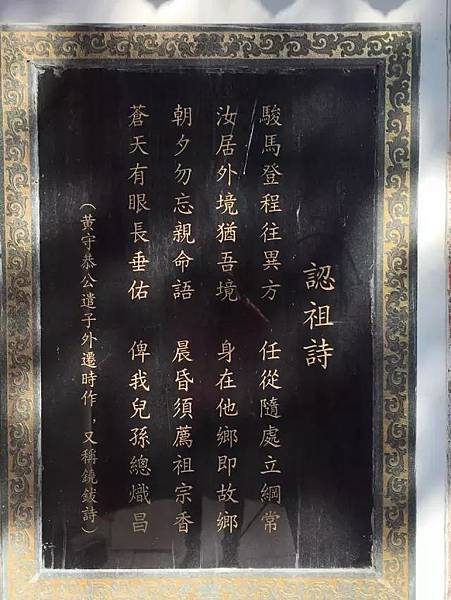 認祖詩
駿馬登程往異方　任從隨處立綱常
汝居外境猶吾境　身在他鄉即故鄉
朝夕勿忘親命語　晨昏須薦祖宗香
蒼天有眼長垂佑　俾我兒孫總熾昌
（黃守恭公遣子外遷時作，又稱鐃鈸詩）